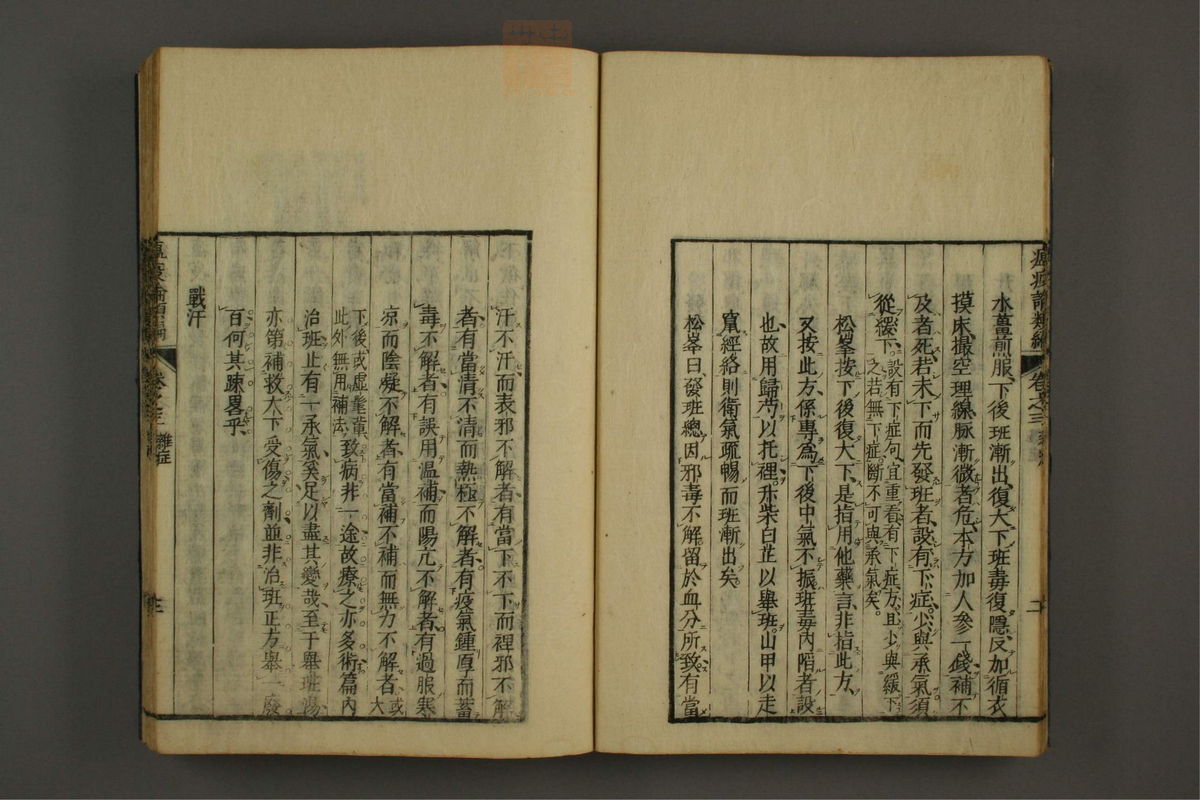 水薑煎服下後班漸出復大下班毒復隱反加循衣
摸床撮空理線脉漸微者危本方加人參一錢補不
及者死若未下而先發班者設有下症少與承氣須
從緩下設有下症句宜重看有下症方且少與緩下
之若無下症斷不可與承氣矣
松峯按下後復大下是指用他藥言非指此方
又按此方係專爲下後中氣不振班毒內陷者設
也故用歸芍以托裡升柴白芷以舉班山甲以走
竄經絡則衛氣疏暢而班漸出矣
松峯曰發班總因邪毒不解留於血分所致有當
汗不汗而表邪不解者有當下不下而裡邪不解
者有當清不清而熱極不解者有疫氣鍾厚而蓄
毒不解者有誤用温補而陽亢不解者有過服寒
凉而陰凝不解者有當補不補而無力不解者或大
下後或虛髦輩
此外無用補法致病非一途故療之亦多術篇內
治班止有一承氣奚足以盡其變哉至于舉班湯
亦第補救大下受傷之劑並非治班正方舉一廢
百何其疎畧乎
戰汗
瘟疫論類編 卷之三 雜症